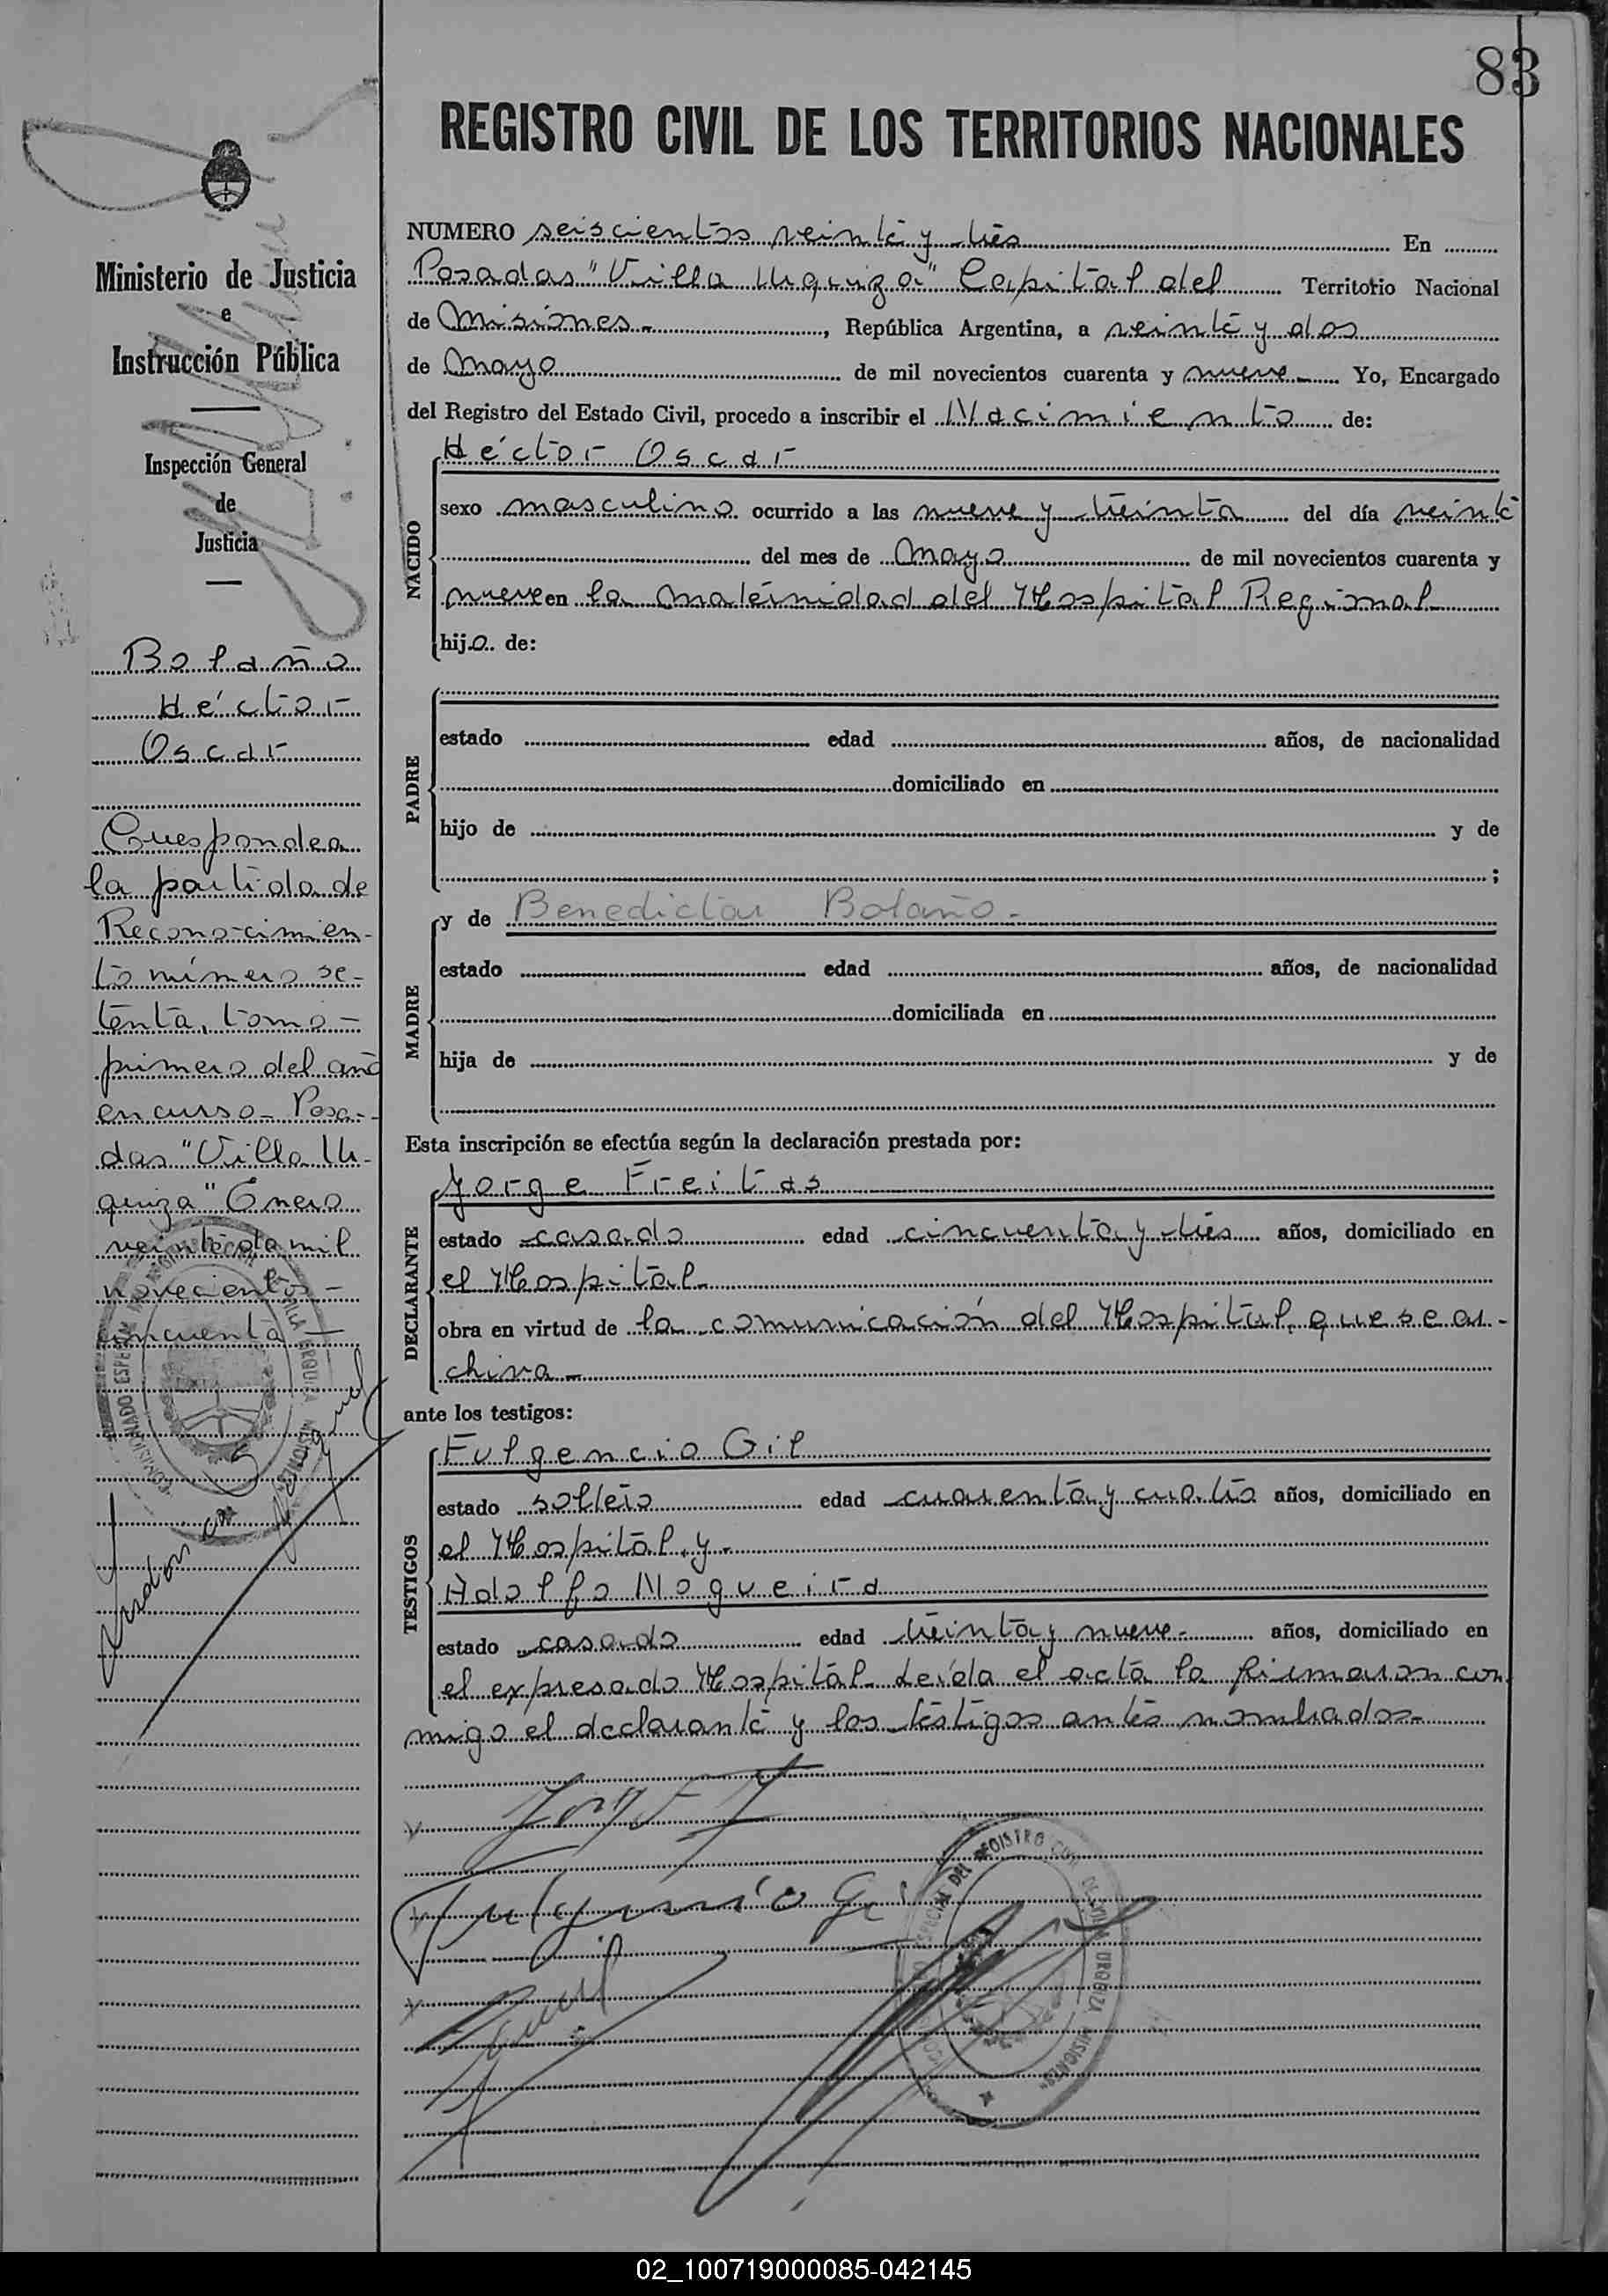 83
REGISTRO CIVIL DE LOS TERRITORIOS NACIONALES
Ministerio de Justicia
e
Instrucción Pública
Inspección General
de
Justicia
Bolaño
Héctor
Oscar
Corresponde a
la partida de
Reconocimien-
to número se-
tenta, tomo-
primero del año
en curso- Posa-
das "Villa Ur-
quiza" Enero
veinte de mil
novecientos-
cincuenta-
NUMERO seiscientos veinte y tres En
Posadas "Villa Urquiza" Capital del Territorio Nacional
de Misiones.-, República Argentina, a veinte y dos
de Mayo de mil novecientos cuarenta y nueve- Yo, Encargado
del Registro del Estado Civil, procedo a inscribir el Nacimiento de:
NACIDO
Héctor Oscar
sexo masculino ocurrido a las nueve y treinta del día veinte
del mes de Mayo de mil novecientos cuarenta y
nueve en la Maternidad del Hospital Regional
hijo de:
PADRE
estado edad años, de nacionalidad
domiciliado en
hijo de y de
;
MADRE
y de Benedicta Bolaño.-
estado edad años, de nacionalidad
domiciliada en
hija de y de
Esta inscripción se efectúa según la declaración prestada por:
DECLARANTE
Jorge Freitas
estado casado edad cincuenta y tres años, domiciliado en
el Hospital
obra en virtud de la comunicación del Hospital, que se ar-
chiva-
ante los testigos:
TESTIGOS
Fulgencio Gil
estado soltero edad cuarenta y cuatro años, domiciliado en
el Hospital, y-
Adolfo Nogueira
estado casado edad treinta y nueve- años, domiciliado en
el expresado Hospital- Leída el acta la firmaron con-
migo el declarante y los testigos antes nombrados-
Fulgencio G
DEL REGISTRO CIVIL
URQUIZA MISIONES
02_100719000085-042145